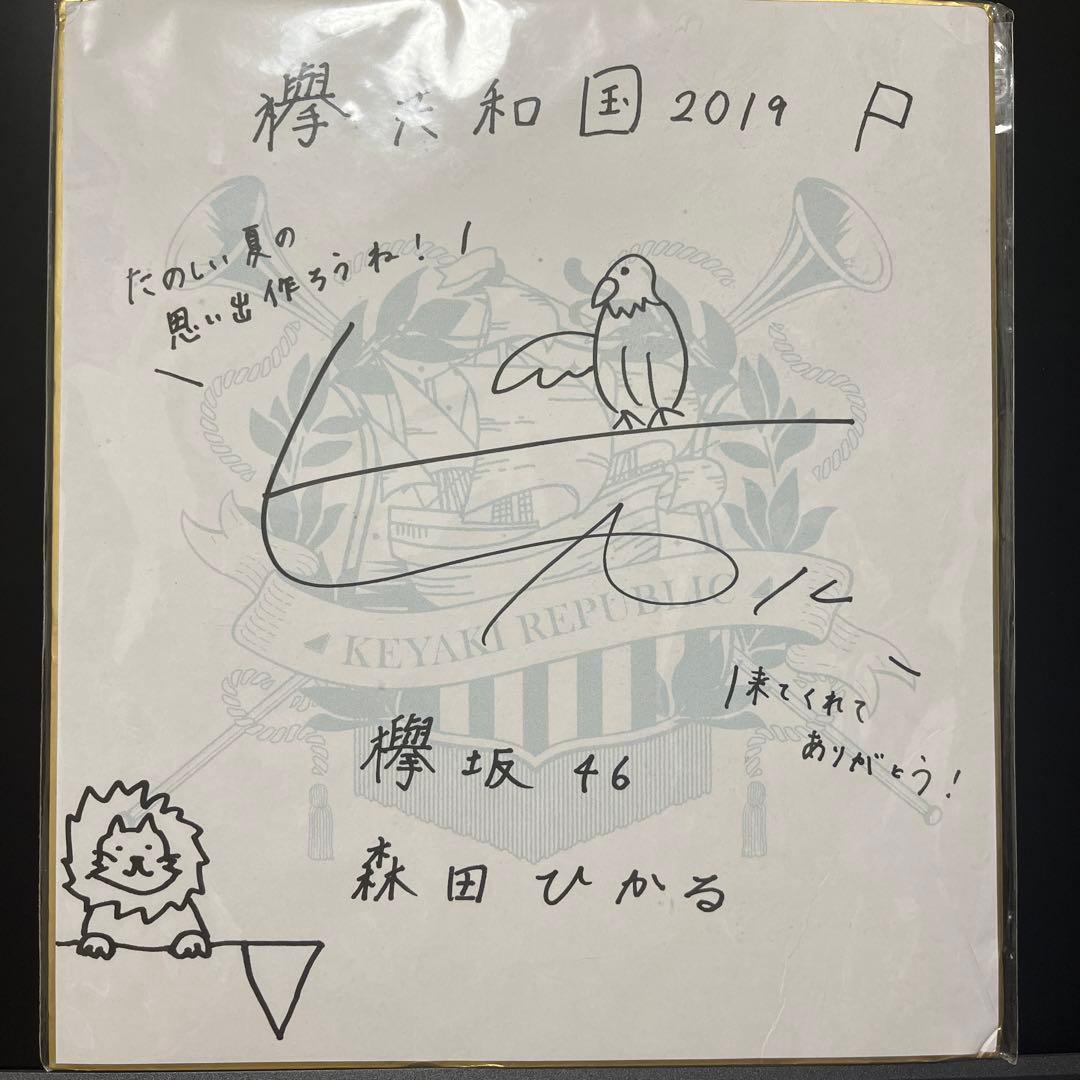 欅共和国2019
たのしい夏の
思い出作ろうね!
KEYAKI REPUBLIC
来てくれて
ありがとう!
欅坂46
森田ひかる